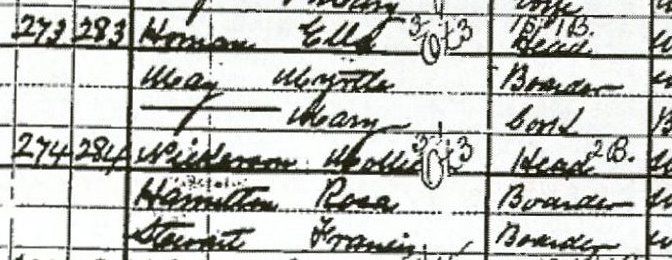 Mary Wife
15 1B.
273 283 Homan Ella 3 Ot 3 Head
May Myrtle Boarder
— Mary Cook
274 284 Nickerson Mollie 3 Ot 3 Head 2 B.
Hamilton Rosa Boarder
Stewart Francis Boarder